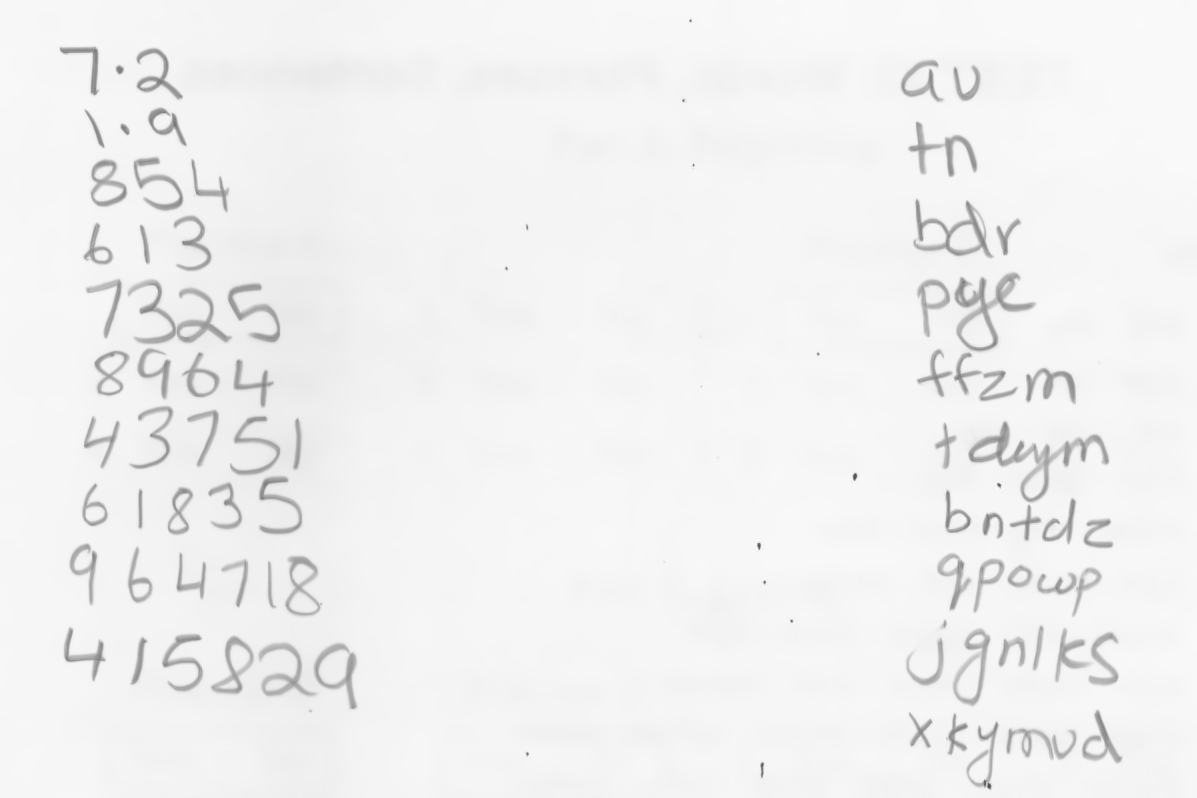 7.2
1.9
854
613
7325
8964
43751
61835
964718
415829
au
tn
bdr
pge
ffzm
bntdz
qpowp
jgnlks
xkymvd